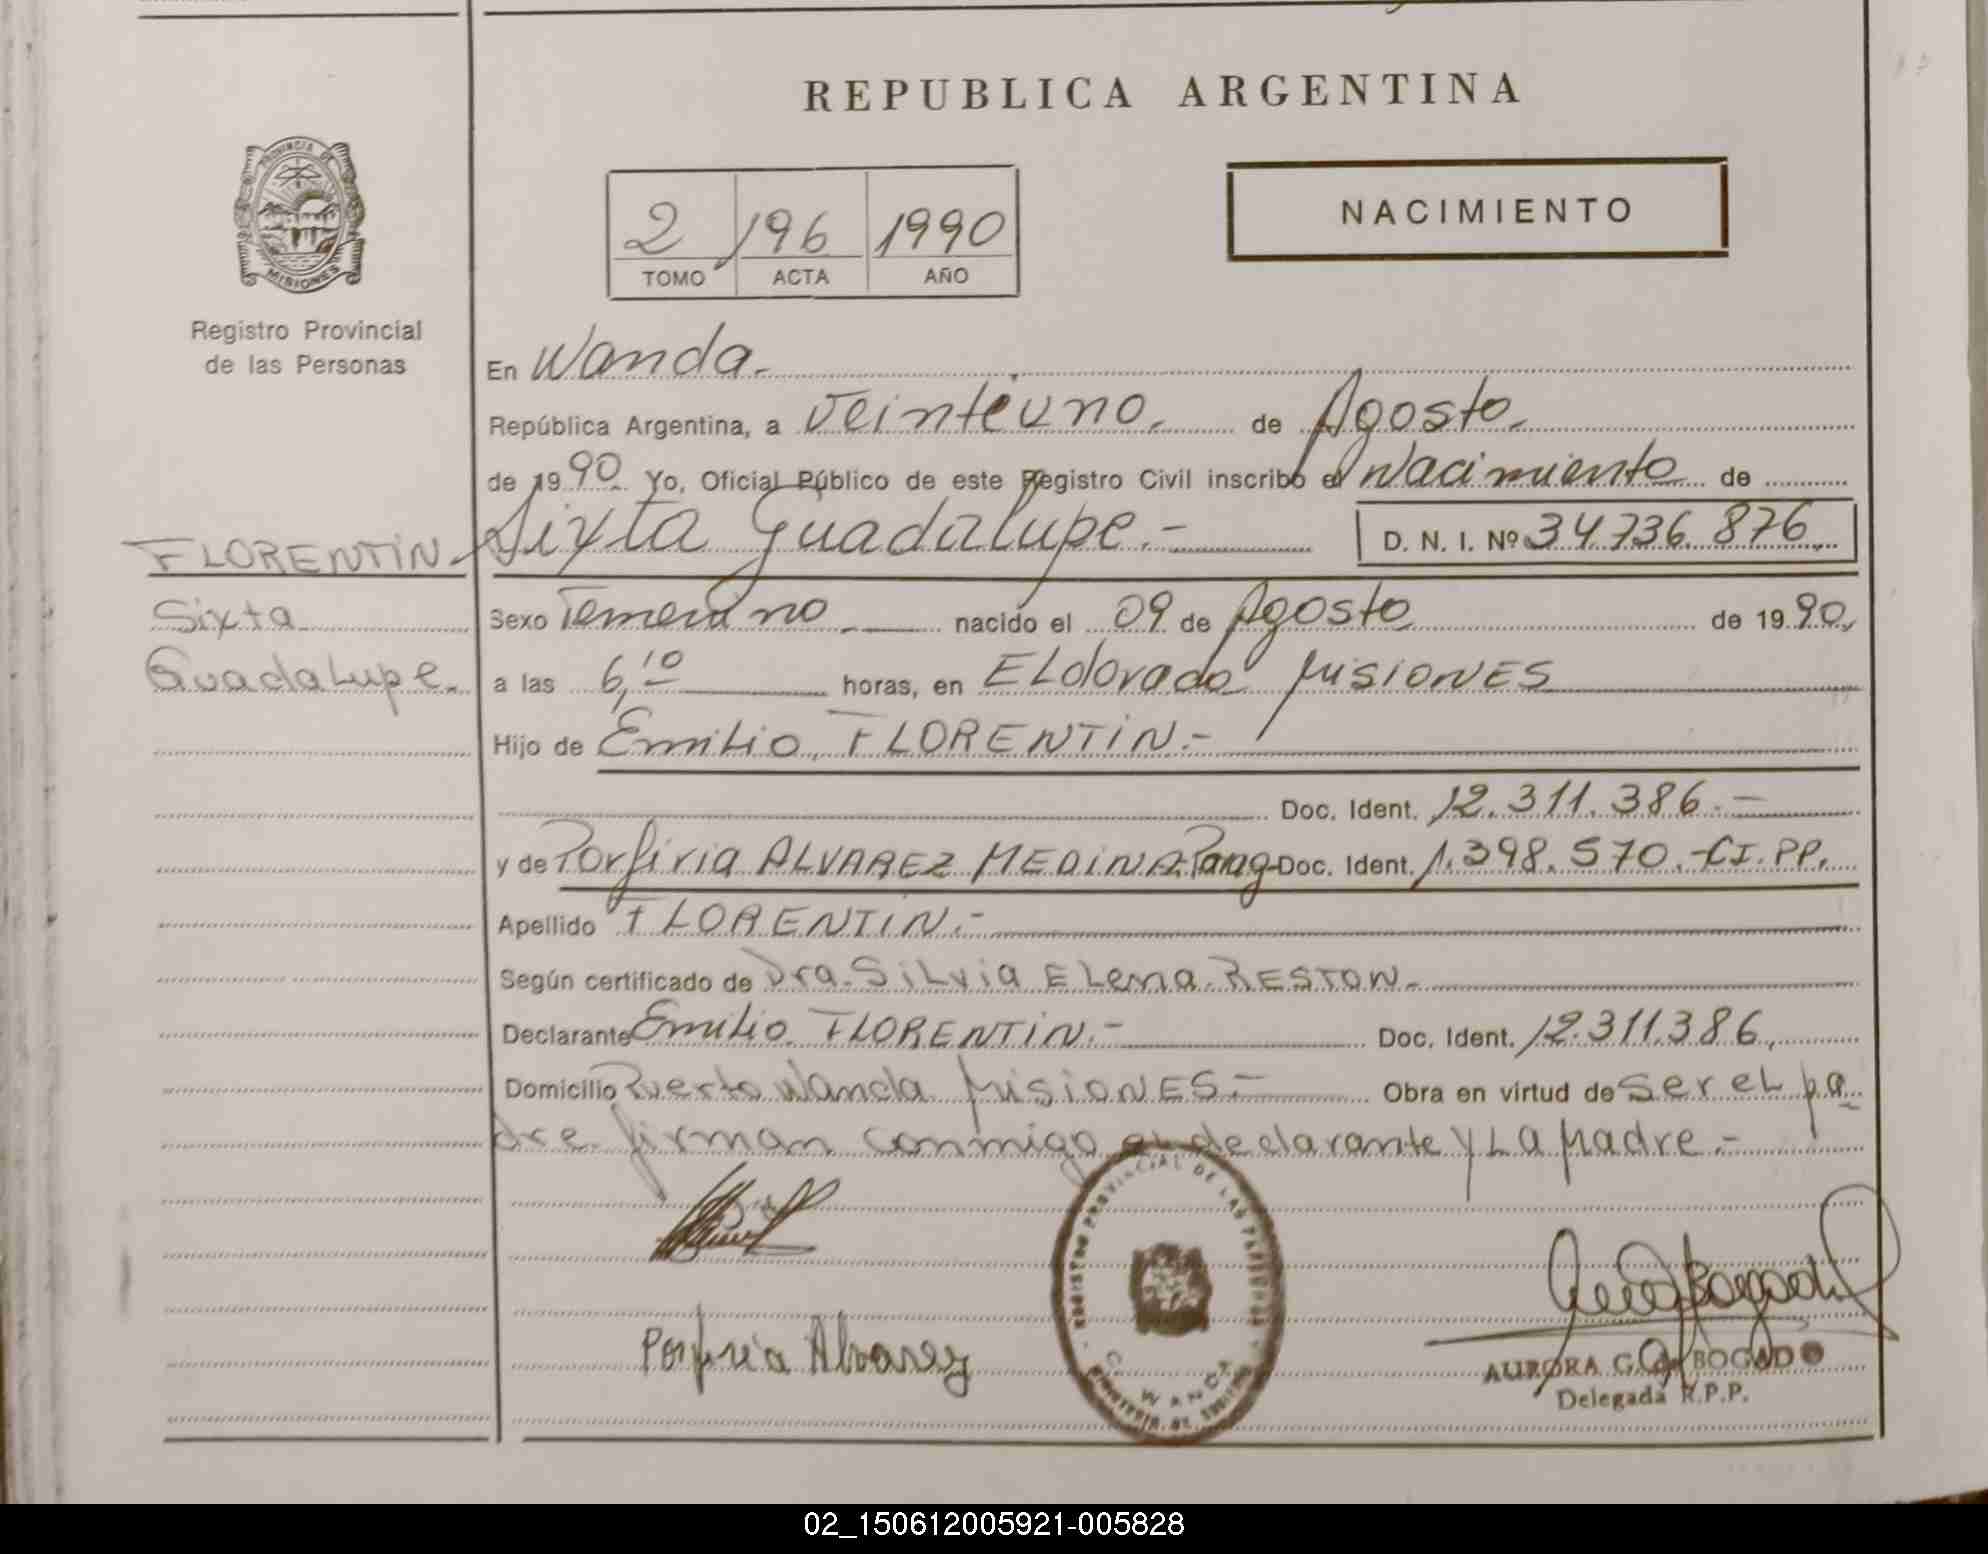 REPUBLICA ARGENTINA
PROVINCIA DE
MISIONES
Registro Provincial
de las Personas
2 196 1990
TOMO ACTA AÑO
NACIMIENTO
En Wanda.
República Argentina, a Veintiuno. de Agosto.
de 1990. Yo, Oficial Público de este Registro Civil inscribo el Nacimiento de
FLORENTIN Sixta Guadalupe.- D. N. I. Nº 34.736.876.
Sixta
Guadalupe.
Sexo Femenino nacido el 09 de Agosto de 1990,
a las 6,10 horas, en ELdorado MISIONES
Hijo de Emilio FLORENTIN.-
Doc. Ident. 12.311.386.-
y de Porfiria ALVAREZ MEDINA. Doc. Ident. 1.398.570.-CI.PP.
Apellido FLORENTIN.-
Según certificado de Dra. SiLvia ELena RESTON.
Declarante Emilio FLORENTIN.- Doc. Ident. 12.311.386.
Domicilio Puerto Wanda MISIONES.- Obra en virtud de ser eL pa
dre firman conmigo el declarante y La Madre.-
REGISTRO PROVINCIAL DE LAS PERSONAS
WANDA
Porfiria Alvarez
AURORA G. de BOGADO
Delegada R.P.P.
02_150612005921-005828